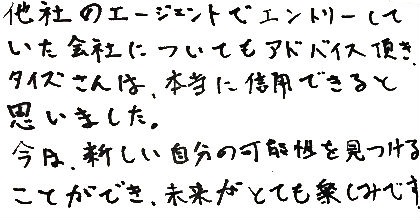 他社のエージェントでエントリーして
いた会社についてもアドバイス頂き、
タイズさんは、本当に信用できると
思いました。
今は、新しい自分の可能性を見つける
ことができ、未来がとても楽しみです